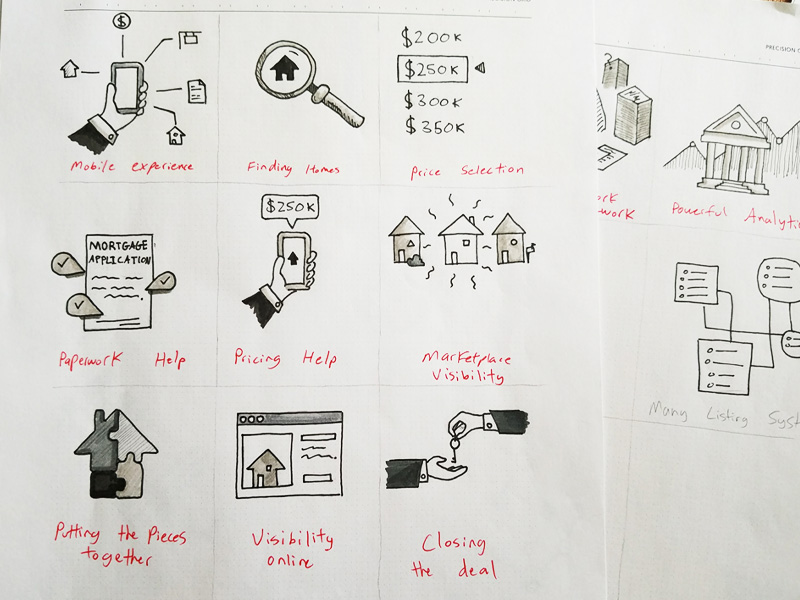 $
Mobile experience
Finding Homes
$200K
$250K
$300K
$350K
Price Selection
MORTGAGE
APPLICATION
Paperwork Help
$250K
Pricing Help
Marketplace
Visibility
Putting the Pieces
together
Visibility
online
Closing
the deal
PRECISION
?
Powerful
Many Listing